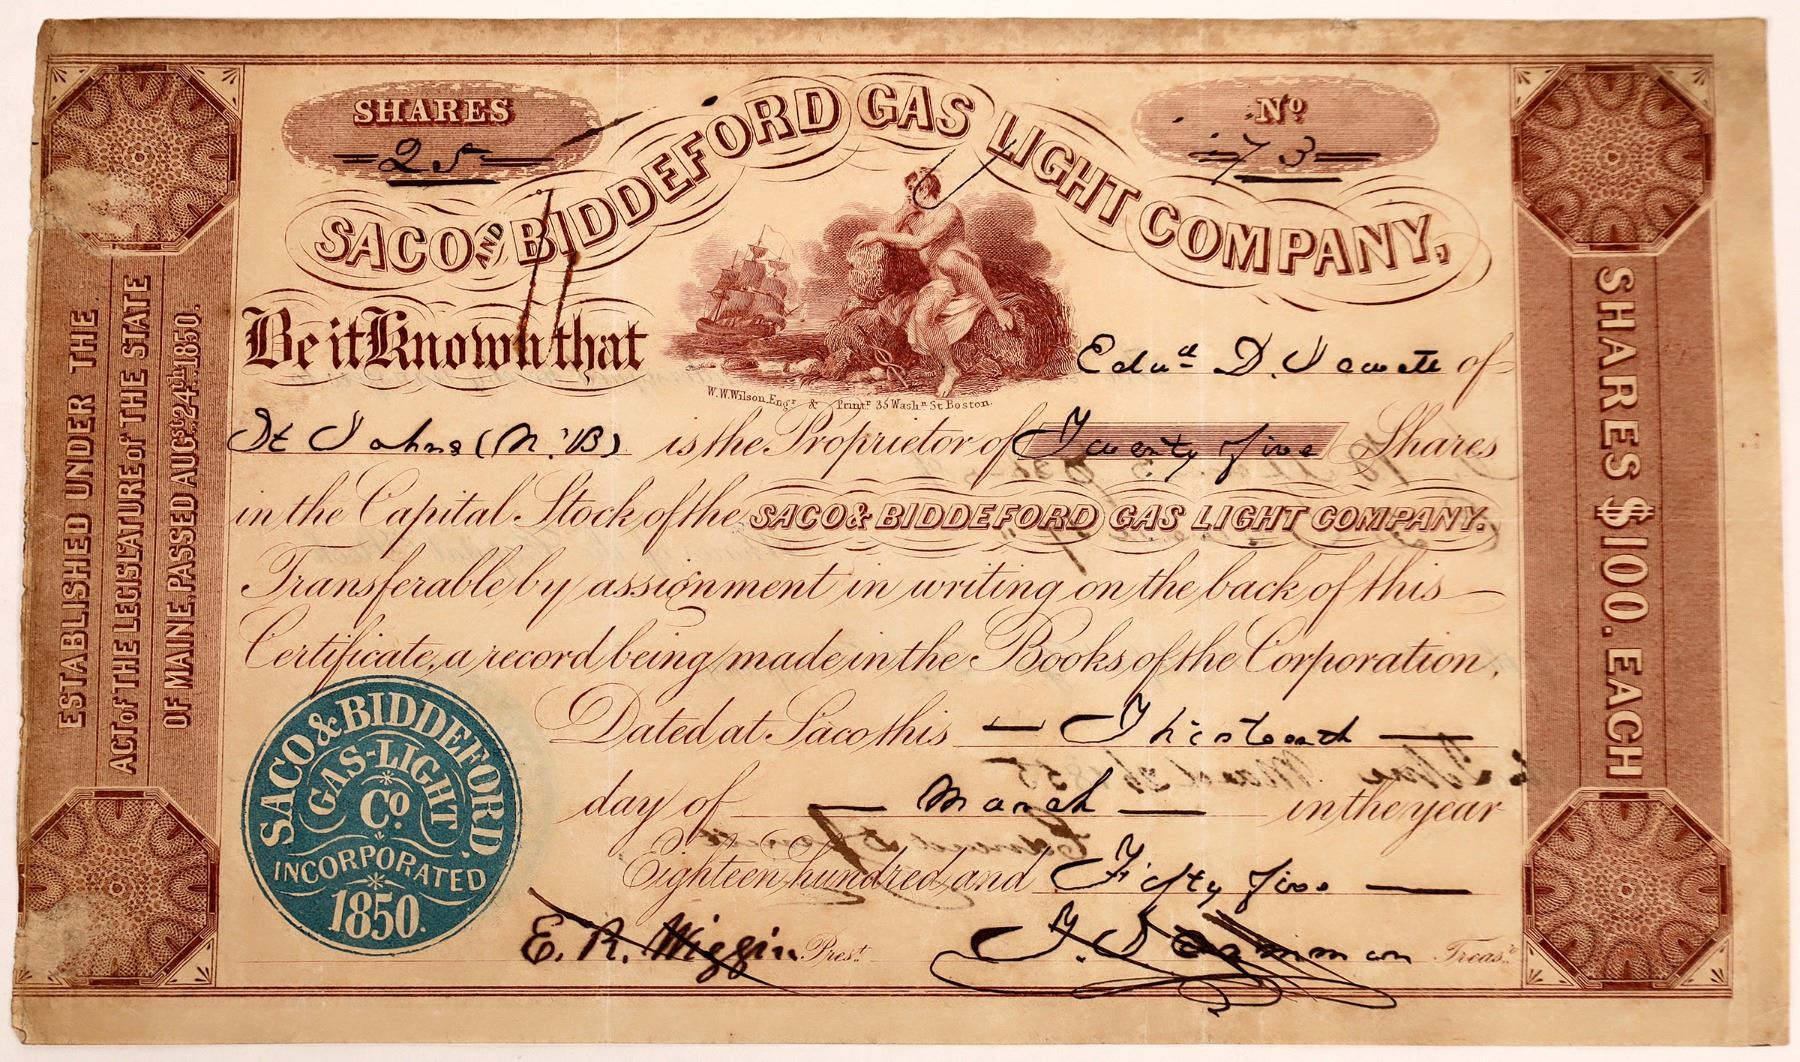 SHARES
25
No
73
SACO AND BIDDEFORD GAS LIGHT COMPANY,
Be it Known that
Edwd D. Jewett of
W.W.Wilson, Engr & Printr 35 Washn St Boston.
St Johns (N.B) is the Proprietor of Twenty five Shares
in the Capital Stock of the SACO & BIDDEFORD GAS LIGHT COMPANY.
Transferable by assignment in writing on the back of this
Certificate, a record being made in the Books of the Corporation.
Dated at Saco this — Thirteenth —
day of — March — in the year
Eighteen hundred and Fifty five —
E. R. Wiggin Prest
Treasr
SACO & BIDDEFORD
GAS-LIGHT
Co
INCORPORATED
1850.
ESTABLISHED UNDER THE
ACT of THE LEGISLATURE of THE STATE
OF MAINE, PASSED AUGst 24th 1850.
SHARES $100. EACH